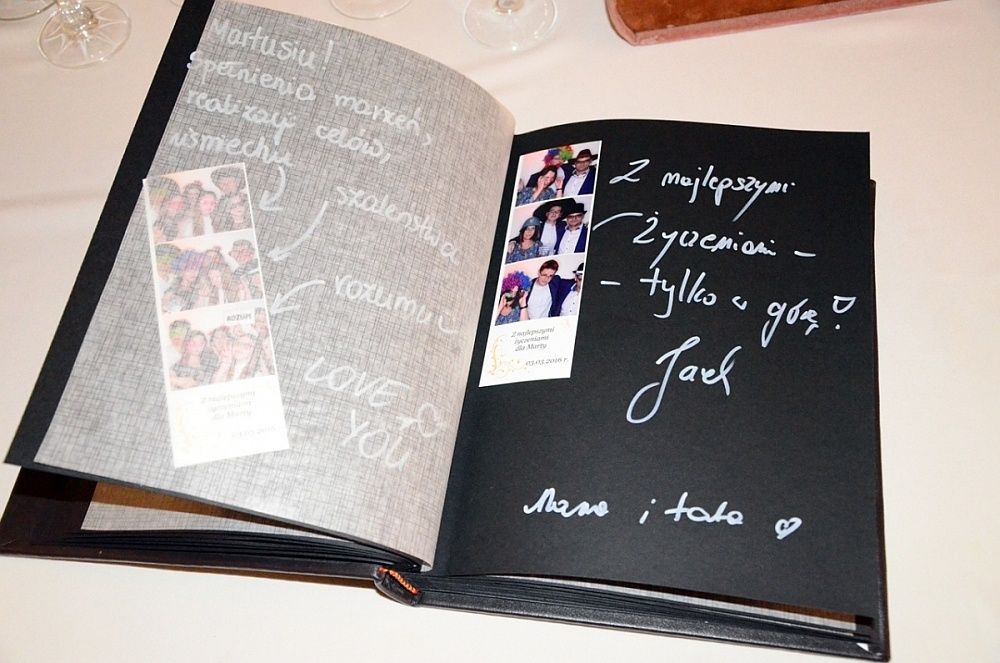 Martusiu!
Spełnienia marzeń,
realizacji celów,
uśmiechu
szaleństwa
rozumu
LOVE
YOU
ROZUM
Z najlepszymi
życzeniami
dla Marty
03.03.2016
Z najlepszymi
życzeniami
dla Marty
03.03.2016 r.
Z najlepszymi
Życzeniami –
– tylko w górę!
Mama i tata